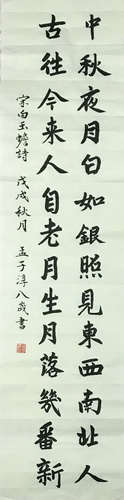 中秋夜月白如銀照見東西南北人
古往今来人自老月生月落幾番新
宋白玉蟾詩 戊戌秋月 孟子淳八歲書